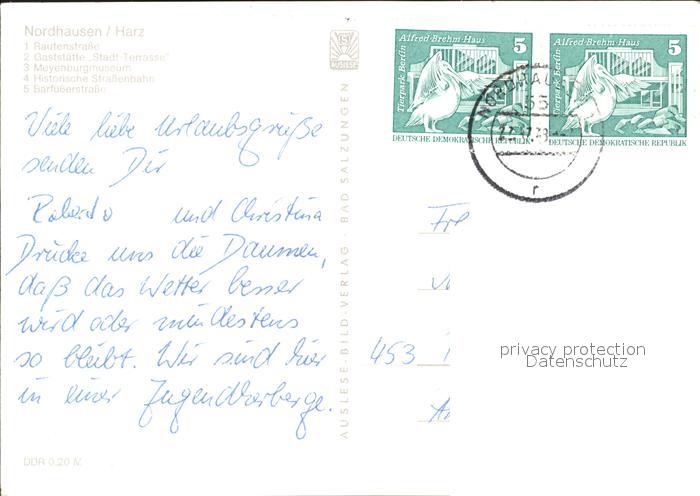 Nordhausen / Harz
1 Rautenstraße
2 Gaststätte „Stadt-Terrasse"
3 Meyenburgmuseum
4 Historische Straßenbahn
5 Barfüßerstraße
Viele liebe Urlaubsgrüße
senden Dir
Roberto und Christina
Drücke uns die Daumen,
daß das Wetter besser
wird oder mindestens
so bleibt. Wir sind hier
in einer Jugendherberge.
DDR 0,20 M
AUSLESE-BILD-VERLAG · BAD SALZUNGEN
Alfred-Brehm-Haus 5
Tierpark Berlin
DEUTSCHE DEMOKRATISCHE REPUBLIK
Alfred-Brehm-Haus 5
Tierpark Berlin
DEUTSCHE DEMOKRATISCHE REPUBLIK
NORDHAU
55
r
453
privacy protection
Datenschutz